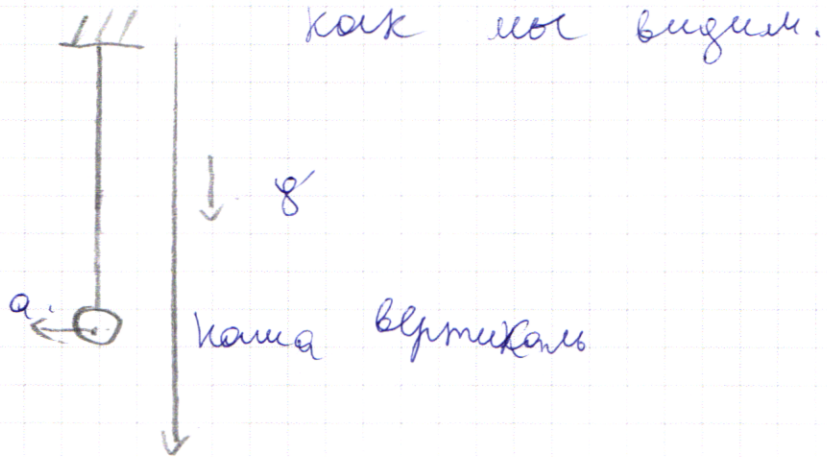 как мы видим.
g
a
наша вертикаль